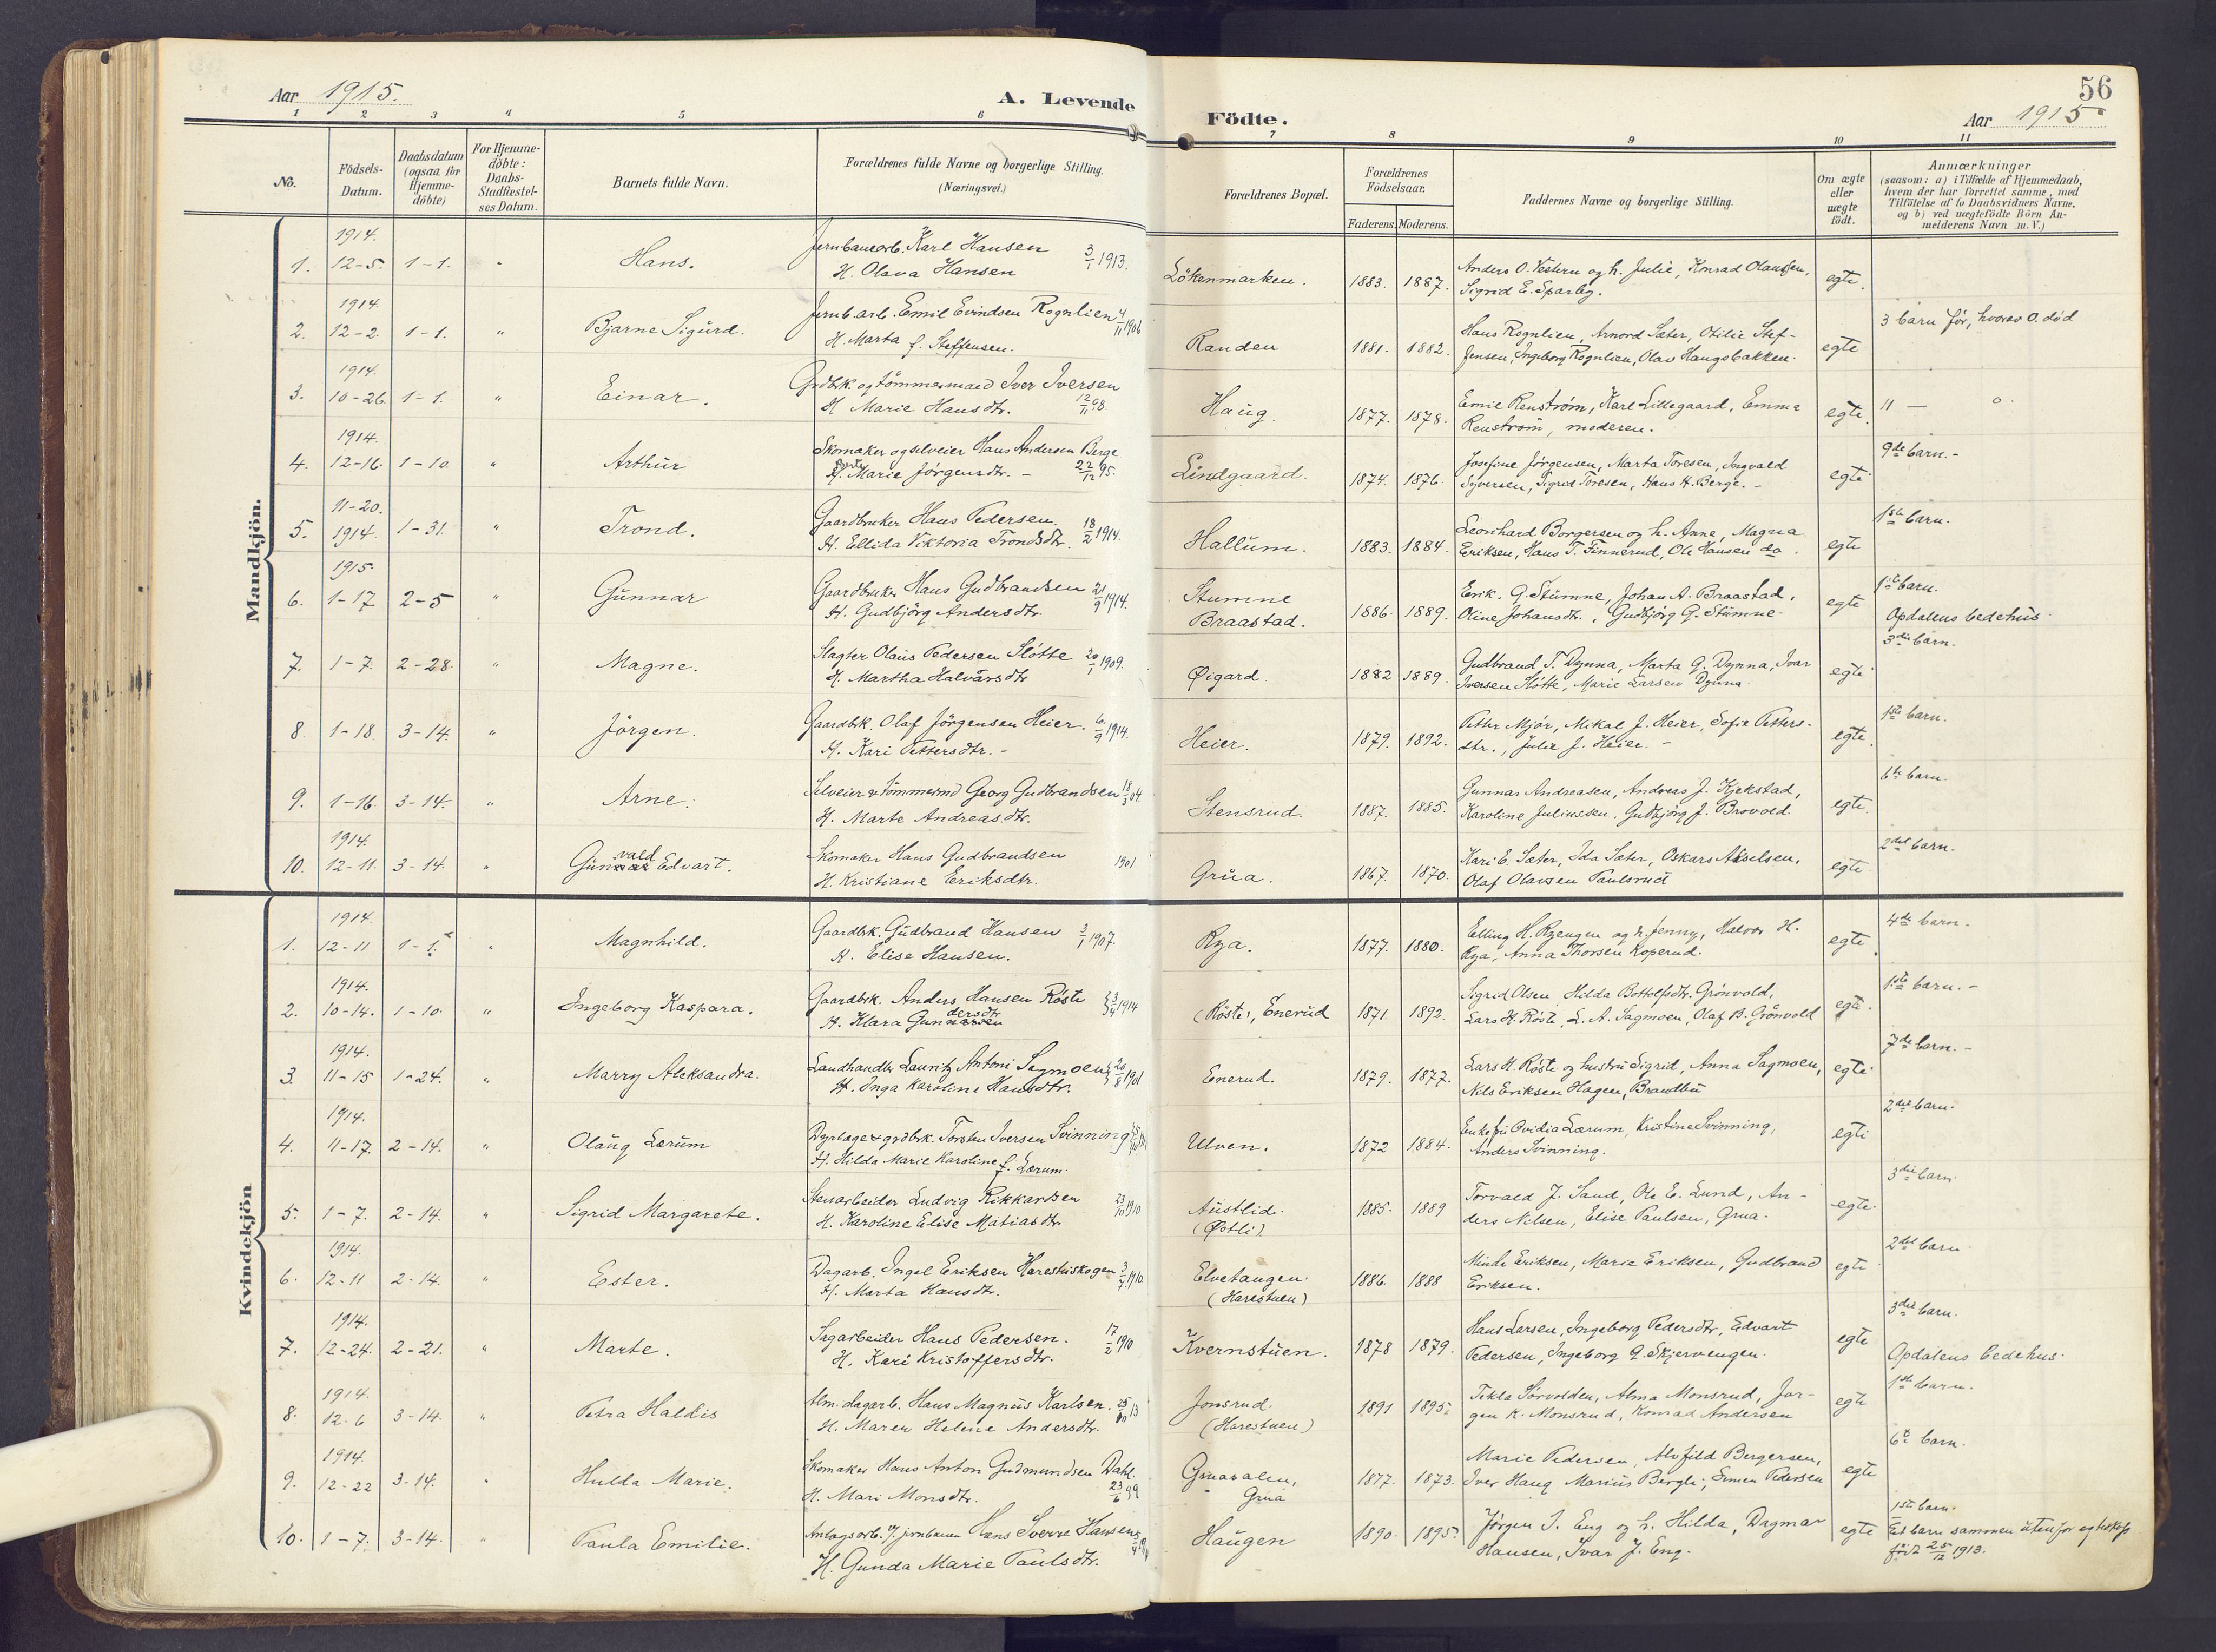 56
Aar 1915.
A. Levende
Födte.
Aar 1915
1 2 3 4 5 6 7 8 9 10 11
No.
Födsels-Datum.
Daabsdatum (ogsaa for Hjemme-döbte)
For Hjemme-döbte: Daabs-Stadfæstel-ses Datum.
Barnets fulde Navn.
Forældrenes fulde Navne og borgerlige Stilling. (Næringsvei.)
Forældrenes Bopæl.
Forældrenes Födselsaar.
Faderens. Moderens.
Faddernes Navne og borgerlige Stilling.
Om ægte eller uægte födt.
Anmærkninger
(saasom: a) i Tilfælde af Hjemmedaab,
hvem der har forrettet samme, med
Tilföielse af to Daabsvidners Navne,
og b) ved uægtefödte Börn An-
melderens Navn m. V.)
Mandkjön.
1914.
1. 12-5. 1-1. " Hans. Jernbanearb. Karl Hansen 3/1 1913.
H. Olava Hansen
Lökenmarken. 1883. 1887. Anders O. Vestern og h. Julie, Konrad Olaussen,
Sigrid E. Sparby. egte.
1914.
2. 12-2. 1-1. " Bjarne Sigurd. Jernb.arb. Emil Evindsen Rognlien 4/11 1906
H. Marta f. Steffensen.
Randen 1881. 1882. Hans Rognlien, Arnord Sæter, Otilie Stef-
fensen, Ingeborg Rognlien, Olav Haugsbakken. egte
3 barn før, hvorav 0. død
1914.
3. 10-26. 1-1. " Einar. Grdbrk. og tömmermand Iver Iversen
H Marie Hansdtr. 12/11 98.
Haug. 1877. 1878. Emil Renstrøm, Karl Lillegaard, Emma
Renstrøm, moderen. egte.
11 — 0.
1914.
4. 12-16. 1-10. " Arthur Skomaker og selveier Hans Andersen Berge
H. Marie Jörgensdtr. - 22/12 95.
Lindgaard. 1874. 1876. Josefine Jörgensen, Marta Toresen, Ingvald
Syversen, Sigrid Toresen, Hans H. Berge. - egte
9de barn.-
11-20.
5. 1914. 1-31. " Trond. Gaardbruker Hans Pedersen. 18/2 1914.
H. Ellida Viktoria Trondsdtr.
Hallum. 1883. 1884. Leonhard Borgersen og h. Anne, Magna
Eriksen, Hans T. Finnerud, Ole Hansen do. egte
1ste barn.
1915.
6. 1-17 2-5 " Gunnar Gaardbruker Hans Gudbrandsen 21/9 1914.
H. Gudbjörg Andersdtr.
Stumne
Braastad. 1886. 1889. Erik. G. Stumne, Johan A. Braastad,
Oline Johansdtr., Gudbjörg G. Stumne. egte
1ste barn.
Opdalens bedehus.
7. 1-7. 2-28. " Magne. Slagter Olaus Pedersen Slötte 20/1 1909.
H. Martha Halvarsdtr
Øigard. 1882 1889. Gudbrand T. Dynna, Marta G. Dynna, Ivar
Iversen Slötte, Marie Larsen Dynna. egte
3die barn.
8 1-18. 3-14. " Jörgen. Gaardbk. Olaf Jörgensen Heier. 6/9 1914.
H. Kari Pettersdtr. -
Heier. 1879. 1892. Petter Mjör, Mikal J. Heier, Sofie Petters-
dtr., Julie J. Heier. - egte.
1ste barn.
9. 1-16. 3-14. " Arne. Selveier & tömmermd Georg Gudbrandsen 18/3 04.
H. Marte Andreasdtr.
Stensrud. 1887. 1885. Gunnar Andreasen, Andreas J. Kjekstad,
Karoline Juliussen, Gudbjörg J. Brovold. egte.
6te barn.
1914.
10. 12-11. 3-14. " Gunvald Edvart. Skomaker Hans Gudbrandsen 1901
H. Kristiane Eriksdtr.
Grua. 1867. 1870. Kari E. Sæter, Ida Sæter, Oskar Akselsen,
Olaf Olavsen Paulsrud egte
2det barn.
Kvindekjön
1914.
1. 12-11 1-1. " Magnhild. Gaardbk. Gudbrand Hansen 3/1 1907.
H. Elise Hansen.
Rya. 1877. 1880. Elling H. Ryengen og h. Jenny, Halvor H.
Rya, Anna Thorsen Koperud. egte.
4de barn.
1914.
2. 10-14. 1-10. " Ingeborg Kaspara. Gaardbrk. Anders Hansen Röste 3/4 1914
H. Klara Gunndersdtr
(Röste), Enerud 1871. 1892. Sigrid Olsen, Hilda Bottolfsdtr. Grönvold,
Lars H. Röste, L. A. Sagmoen, Olaf B. Grönvold egte.
1ste barn.-
1914.
3. 11-15 1-24. " Marry Aleksandra. Landhandler Lauritz Antoni Sagmoen 20/8 1901
H. Inga Karoline Hansdtr.
Enerud. 1879. 1877. Lars H. Röste og hustru Sigrid, Anna Sagmoen,
Nils Eriksen Hagen, Brandbu egte
7de barn.-
1914.
4. 11-17. 2-14. " Olaug Lærum Dyrlæge & grdbrk. Torsten Iversen Svinning
H. Hilda Marie Karoline f. Lærum.
Ulven. 1872 1884. Enkefru Ovidia Lærum, Kristine Svinning,
Anders Svinning. egte
2det barn.
5. 1-7. 2-14. " Sigrid Margarete. Stenarbeider Ludvig Rikkardsen 23/10 1910
H. Karoline Elise Matiasdtr.
Austlid.
(Østli) 1885. 1889 Torvald J. Sand, Ole E. Lund, An-
ders Nilsen, Elise Paulsen, Grua. egte.
3die barn.
1914.
6. 12-11 2-14. " Ester. Dagarb. Ingel Eriksen Harestuskogen 3/7 1910.
H. Marta Hansdtr.
Elvetangen.
(Harestuen) 1886. 1888 Minda Eriksen, Marie Eriksen, Gudbrand
Eriksen. egte
2det barn
1914.
7. 12-24. 2-21. " Marte. Sagarbeider Hans Pedersen. 17/2 1910
H. Kari Kristoffersdtr.
Kvernstuen. 1878 1879. Hans Larsen, Ingeborg Pedersdtr, Edvart
Pedersen, Ingeborg G. Skjervengen. egte
3die barn.
Opdalens bedehus.
1914.
8. 12-6 3-14. " Petra Haldis Alm. dagarb. Hans Magnus Karlsen. 25/10 13
H. Maren Helene Andersdtr.
Jonsrud.
(Harestuen) 1891 1895. Tekla Sörvolden, Alma Monsrud, Jör-
gen K. Monsrud, Konrad Andersen egte
1ste barn.
1914.
9. 12-22 3-14. " Hulda Marie. Skomaker Hans Anton Gudmundsen Dahl.
H. Mari Monsdtr. 23/6 99
Gruadalen,
Grua 1877. 1873. Marie Pedersen, Alvfild Bergersen,
Iver Haug Marius Bergli, Simen Pedersen egte
6te barn.
10. 1-7. 3-14. " Paula Emilie. Anlægsarb. v/ jernbanen Hans Sverre Hansen
H. Gunda Marie Paulsdtr.
Haugen 1890. 1895. Jörgen I. Eng og h. Hilda, Dagmar
Hansen, Ivar J. Eng. egte
1ste barn.
Et barn sammen utenfor egteskap
født 25/12 1913.